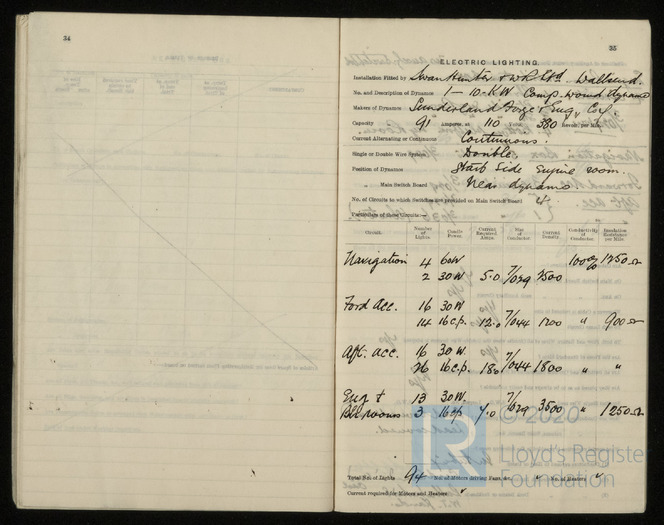 34
35
ELECTRIC LIGHTING.
Installation Fitted by Swan Hunter & W.R. Ltd. Wallsend.
No. and Description of Dynamos 1 – 10-KW Comp. wound dynamo
Makers of Dynamos Sunderland Forge & Eng. Co.
Capacity 91 Amperes, at 110 Volts, 380 Revols. per Min.
Current Alternating or Continuous Continuous.
Single or Double Wire System Double
Position of Dynamos Starb Side Engine room.
„ Main Switch Board Near dynamo
No. of Circuits to which Switches are provided on Main Switch Board
Particulars of these Circuits:—
Circuit. Number of Lights. Candle Power. Current Required Amps. Size of Conductor. Current Density. Conductivity of Conductor. Insulation Resistance per Mile.
Navigation 4 60W 100% 1250 Ω
2 30W 5.0 7/029 2500
Ford Acc. 16 30W
14 16 c.p. 12.0 7/044 1200 " 900 Ω
Aft. acc. 16 30W.
26 16 c.p. 18.0 7/044 1800 " "
Eng & 13 30W.
Blr rooms 3 16 cp 7.0 7/029 3500 " 1250 Ω
© 2020
LR
Lloyd's Register
Foundation
Total No. of Lights 94 No. of Motors driving Fans, &c. No. of Heaters
Current required for Motors and Heaters